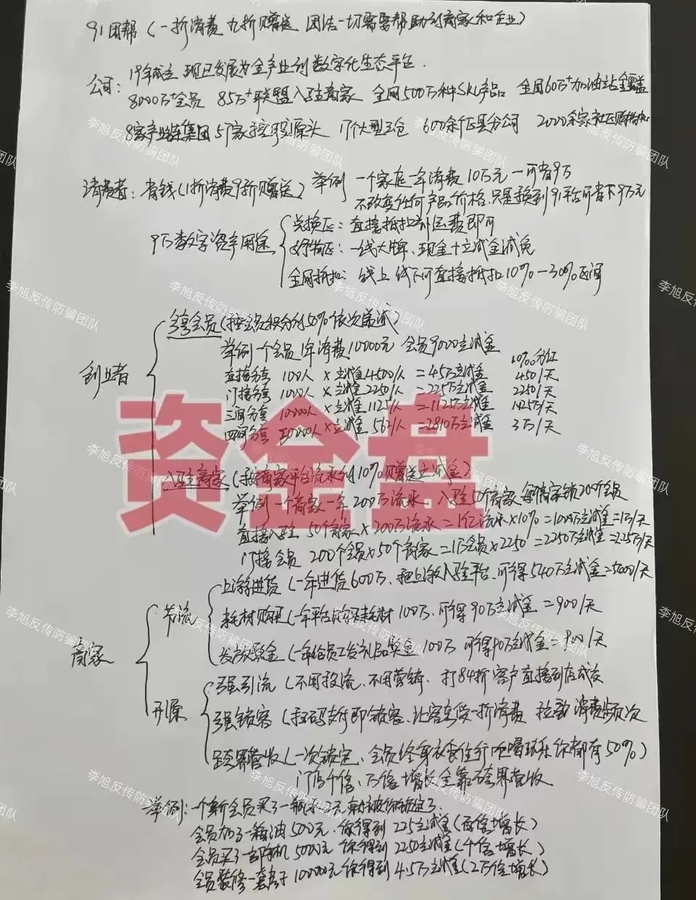 91团帮（一折消费 九折赠送 团结一切需要帮助的商家和企业）
公司：19年成立 现已发展为全产业的数字化生态平台.
8000万+会员 85万+联盟入驻商家 全网500万种SKU产品 全国60万+加油站全覆盖
8家产业链集团 5个家控股源头 17个大型云仓 600余个区县分公司 2000余家社区
消费者：省钱（1折消费9折赠送）举例 一个家庭一年消费10万元 一可省9万
不改变任何产品价格.只是换到91平台可省下9万元
9万数字资产用途
兑换区：直接抵扣补运费即可
好物区：一线大牌、现金+立减金减免
全网抵扣：线上线下可直接抵扣10%-30%区间
创业者
分享会员（按会员积分的50%依次递减）
举例一个会员1年消费10000元 会员9000立减金
直接分享 100人×立减金4500/人=45万立减金 450/天
门接分享 1000人×立减金2250/人=225万立减金 2250/天
三间分享 10000人×立减金1125/人=1125万立减金
四间分享 立减金 562/人=2810万立减金 3万/天
入驻商家（按商家平台流水的10%赠送立减金）
举例一个商家一年200万流水 入驻50个商家 每商家锁200个会员
直接入驻 50个商家×200万流水=1亿流水×10%=1000万立减金=1万/天
门接会员 200个会员×50个商家=1万会员×2250=2250万立减金=2.25万/天
商家
节流
上游进货（一年进货600万.把上游入驻平台.可得540万立减金=5400/天
耗材购买（一年平台购买耗材100万.可得90万立减金=900/天
发放奖金（一年给员工发礼品奖金100万 可得90万立减金=900/天
开源
强引流（不用投流.不用营销.打84折客户直接到店成交
强锁客（扫码支付即锁客.让客享受一折消费 拉动消费频次
跨界营收（一次锁定.会员终身衣食住行吃喝玩乐你都有50%）
门店千倍、万倍增长全靠跨界营收
举例：一个新会员买了一瓶水2元 就被你锁定了
会员加了一箱油500元.你得到225立减金（百倍增长）
会员买了一部手机5000元你得到2250立减金（千倍增长）
会员装修一套房100000元你得到4.5万立减金（2万倍增长）
资金盘
李旭反传防骗团队